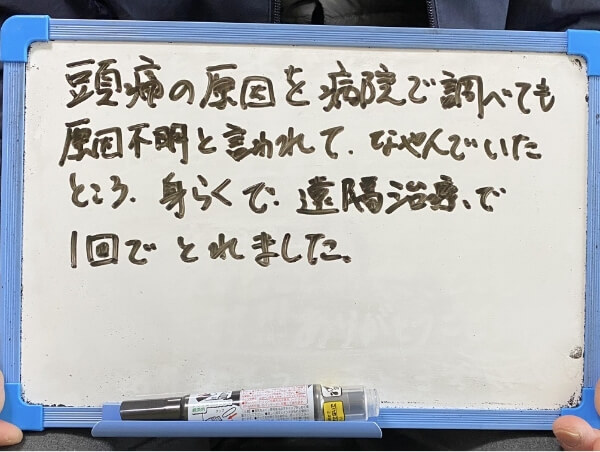 頭痛の原因を病院で調べても
原因不明と言われて、なやんでいた
ところ、身らくで、遠隔治療、で
1回でとれました。